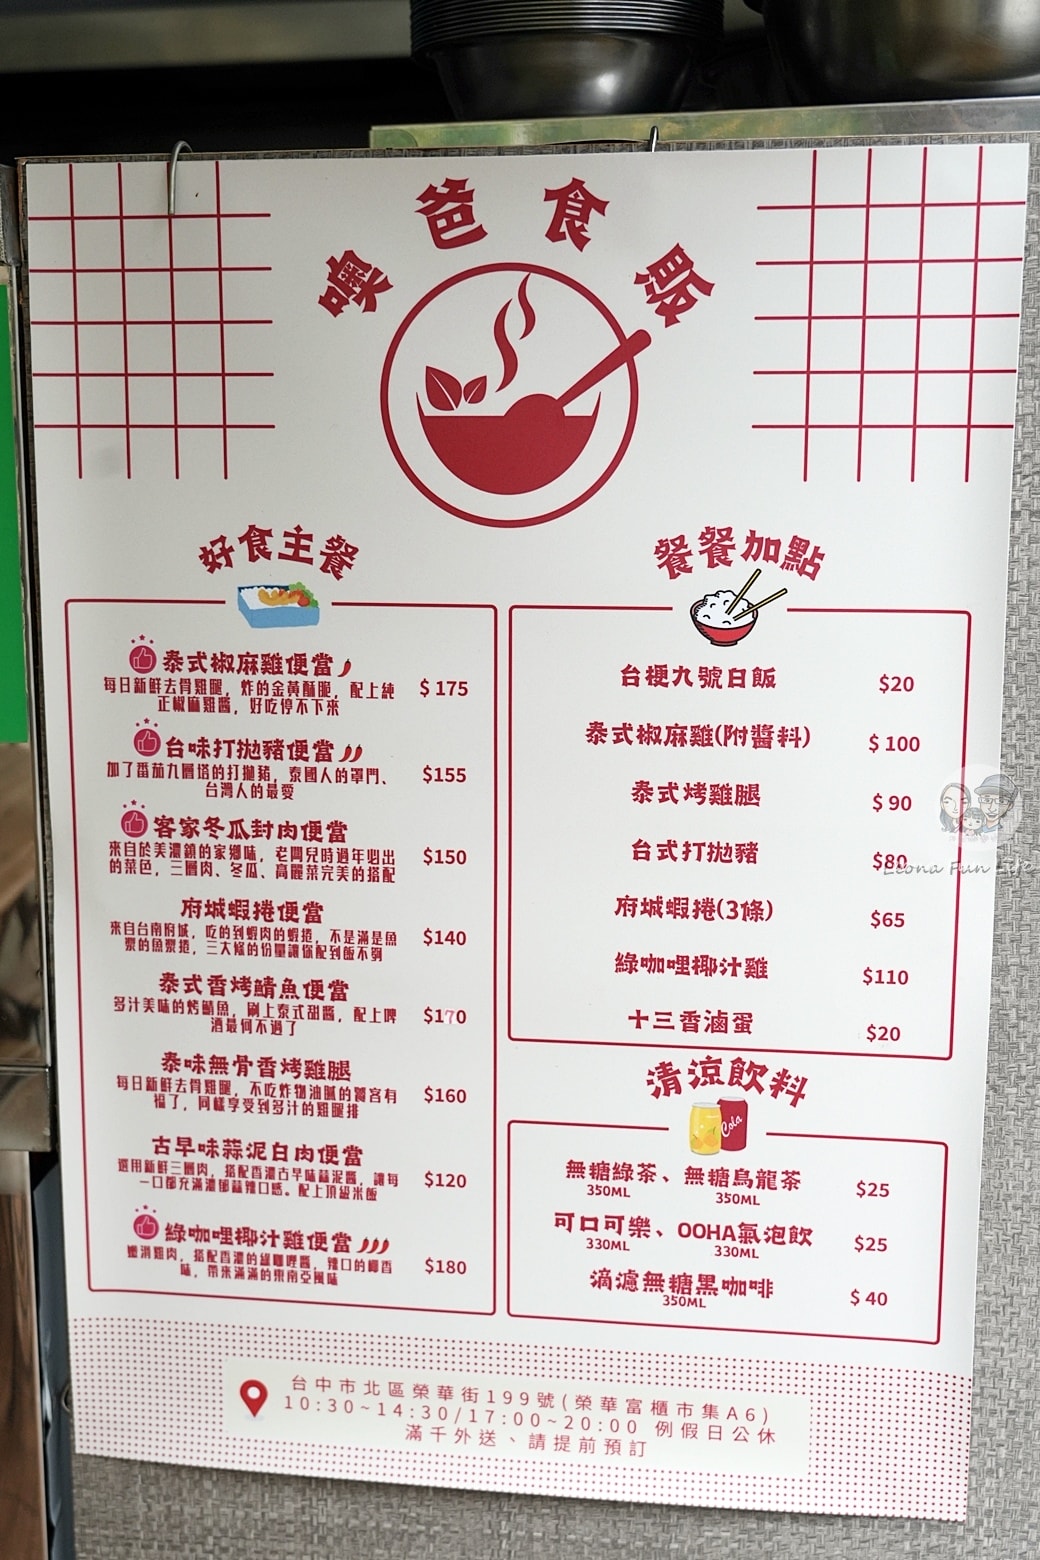 噢爸食販
好食主餐
泰式椒麻雞便當
每日新鮮去骨雞腿，炸的金黃酥脆，配上純
正椒麻雞醬，好吃停不下來
$175
台味打拋豬便當
加了番茄九層塔的打拋豬，泰國人的罩門、
台灣人的最愛
$155
客家冬瓜封肉便當
來自於美濃鎮的家鄉味，老闆兒時過年必出
的菜色，三層肉、冬瓜、高麗菜完美的搭配
$150
府城蝦捲便當
來自台南府城，吃的到蝦肉的蝦捲，不是滿是魚
漿的魚漿捲，三大條的份量讓你配到飯不夠
$140
泰式香烤鯖魚便當
多汁美味的烤鯖魚，刷上泰式甜醬，配上啤
酒最何不過了
$170
泰味無骨香烤雞腿
每日新鮮去骨雞腿，不吃炸物油膩的饕客有
福了，同樣享受到多汁的雞腿排
$160
古早味蒜泥白肉便當
選用新鮮三層肉，搭配香濃古早味蒜泥醬，讓每
一口都充滿濃郁蒜辣口感。配上頂級米飯
$120
綠咖哩椰汁雞便當
嫩滑雞肉，搭配香濃的綠咖哩醬，辣口的椰香
味，帶來滿滿的東南亞風味
$180
餐餐加點
台梗九號白飯
$20
泰式椒麻雞(附醬料)
$100
泰式烤雞腿
$90
台式打拋豬
$80
府城蝦捲(3條)
$65
綠咖哩椰汁雞
$110
十三香滷蛋
$20
清涼飲料
Cola
無糖綠茶、無糖烏龍茶
350ML 350ML
$25
可口可樂、OOHA氣泡飲
330ML 330ML
$25
滴濾無糖黑咖啡
350ML
$40
台中市北區榮華街199號(榮華富櫃市集A6)
10:30~14:30/17:00~20:00 例假日公休
滿千外送、請提前預訂
Leona Fun Life